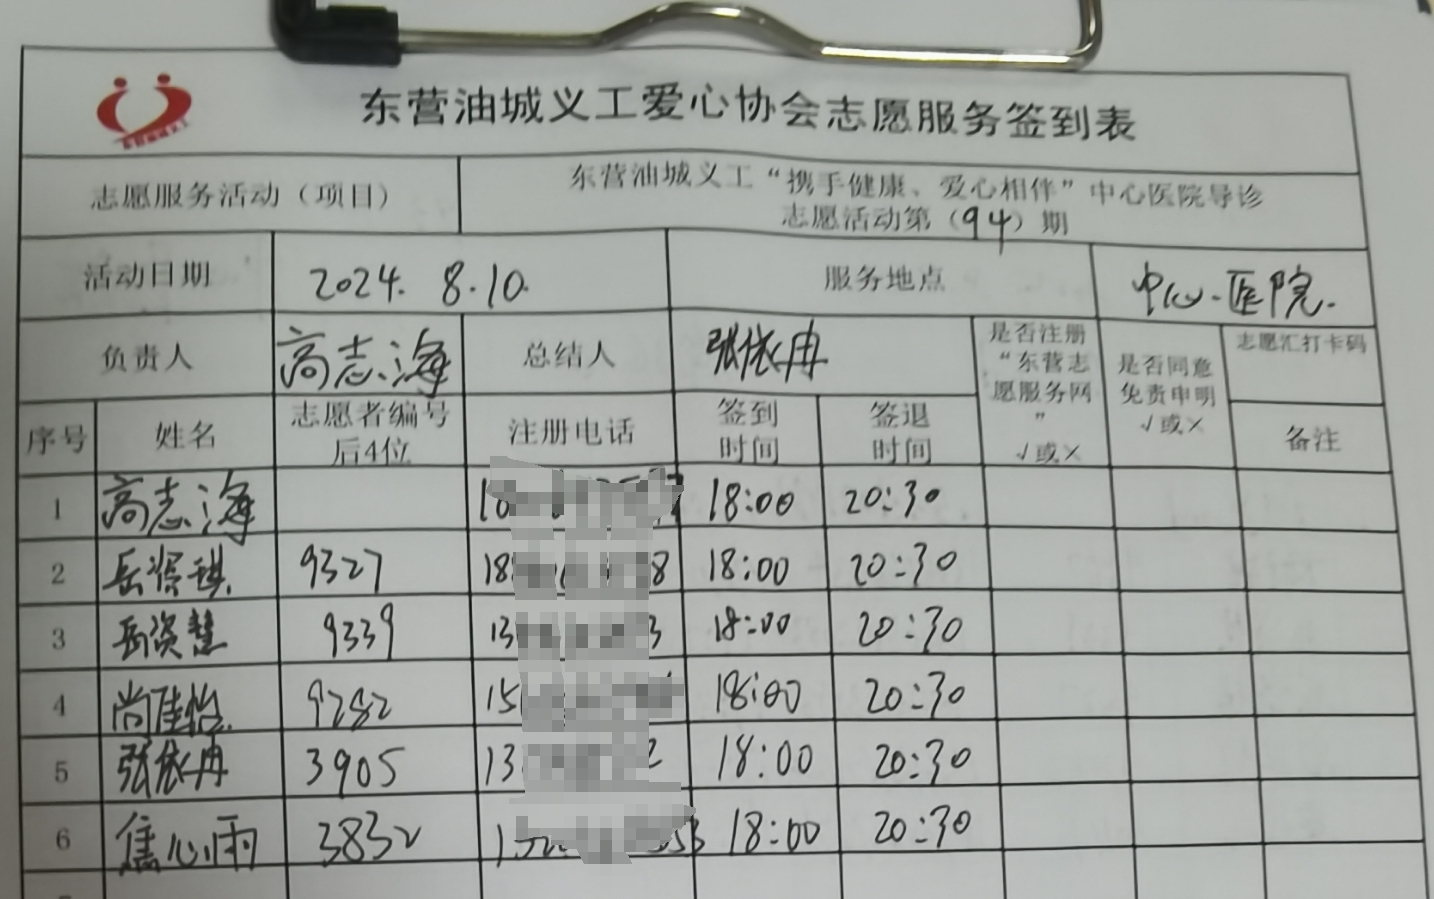 东营油城义工爱心协会志愿服务签到表
志愿服务活动（项目） 东营油城义工“携手健康、爱心相伴”中心医院导诊
志愿活动第（94）期
活动日期 2024.8.10. 服务地点 中心医院.
负责人 高志海 总结人 张依冉 是否注册“东营志愿服务网”√或× 是否同意免责申明√或× 志愿汇打卡码
序号 姓名 志愿者编号后4位 注册电话 签到时间 签退时间 备注
1 高志海 18:00 20:30
2 岳资琪 9327 18 8 18:00 20:30
3 岳资慧 9339 13 3 18:00 20:30
4 尚佳怡 9282 15 18:00 20:30
5 张依冉 3905 13 2 18:00 20:30
6 焦心雨 3832 18:00 20:30